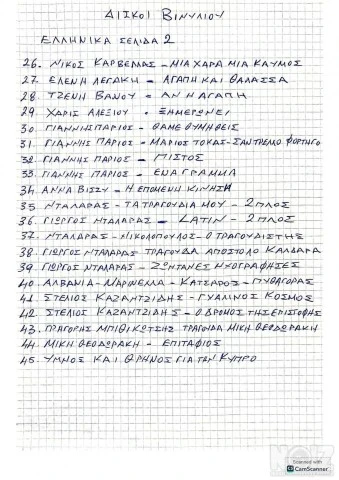 ΔΙΣΚΟΙ ΒΙΝΥΛΙΟΥ
ΕΛΛΗΝΙΚΑ ΣΕΛΙΔΑ 2
26. ΝΙΚΟΣ ΚΑΡΒΕΛΑΣ - ΜΙΑ ΧΑΡΑ ΜΙΑ ΚΑΥΜΟΣ
27. ΕΛΕΝΗ ΛΕΓΑΚΗ - ΑΓΑΠΗ ΚΑΙ ΘΑΛΑΣΣΑ
28 ΤΖΕΝΗ ΒΑΝΟΥ - ΑΝ Η ΑΓΑΠΗ
29 ΧΑΡΙΣ ΑΛΕΞΙΟΥ - ΞΗΜΕΡΩΝΕΙ
30 ΓΙΑΝΝΗΣ ΠΑΡΙΟΣ - ΘΑΜΕ ΘΥΜΗΘΕΙΣ
31 ΓΙΑΝΝΗΣ ΠΑΡΙΟΣ - ΜΑΡΙΟΣ ΤΟΚΑΣ - ΣΑΝ ΤΡΕΛΟ ΦΟΡΤΗΓΟ
32 ΓΙΑΝΝΗΣ ΠΑΡΙΟΣ - ΠΙΣΤΟΣ
33 ΓΙΑΝΝΗΣ ΠΑΡΙΟΣ - ΕΝΑ ΓΡΑΜΜΑ
34 ΑΝΝΑ ΒΙΣΣΥ - Η ΕΠΟΜΕΝΗ ΚΙΝΗΣΗ
35 ΝΤΑΛΑΡΑΣ - ΤΑ ΤΡΑΓΟΥΔΙΑ ΜΟΥ - 2ΠΛΟΣ
36. ΓΙΩΡΓΟΣ ΝΤΑΛΑΡΑΣ - LATIN - 2ΠΛΟΣ
37. ΝΤΑΛΑΡΑΣ - ΝΙΚΟΛΟΠΟΥΛΟΣ - Ο ΤΡΑΓΟΥΔΙΣΤΗΣ
38 ΓΙΩΡΓΟΣ ΝΤΑΛΑΡΑΣ ΤΡΑΓΟΥΔΑ ΑΠΟΣΤΟΛΟ ΚΑΛΔΑΡΑ
39 ΓΙΩΡΓΟΣ ΝΤΑΛΑΡΑΣ - ΖΩΝΤΑΝΕΣ ΗΧΟΓΡΑΦΗΣΕΣ
40 ΑΛΒΑΝΙΑ - ΜΑΡΙΝΕΛΛΑ - ΚΑΤΣΑΡΟΣ - ΠΥΘΑΓΟΡΑΣ
41 ΣΤΕΛΙΟΣ ΚΑΖΑΝΤΖΙΔΗΣ - ΓΥΑΛΙΝΟΣ ΚΟΣΜΟΣ
42 ΣΤΕΛΙΟΣ ΚΑΖΑΝΤΖΙΔΗΣ - Ο ΔΡΟΜΟΣ ΤΗΣ ΕΠΙΣΤΡΟΦΗΣ
43 ΓΡΗΓΟΡΗΣ ΜΠΙΘΙΚΩΤΣΗΣ ΤΡΑΓΟΥΔΑ ΜΙΚΗ ΘΕΟΔΩΡΑΚΗ
44 ΜΙΚΗ ΘΕΟΔΩΡΑΚΗ - ΕΠΙΤΑΦΙΟΣ
45 ΥΜΝΟΣ ΚΑΙ ΘΡΗΝΟΣ ΓΙΑ ΤΗΝ ΚΥΠΡΟ
Scanned with
CS CamScanner